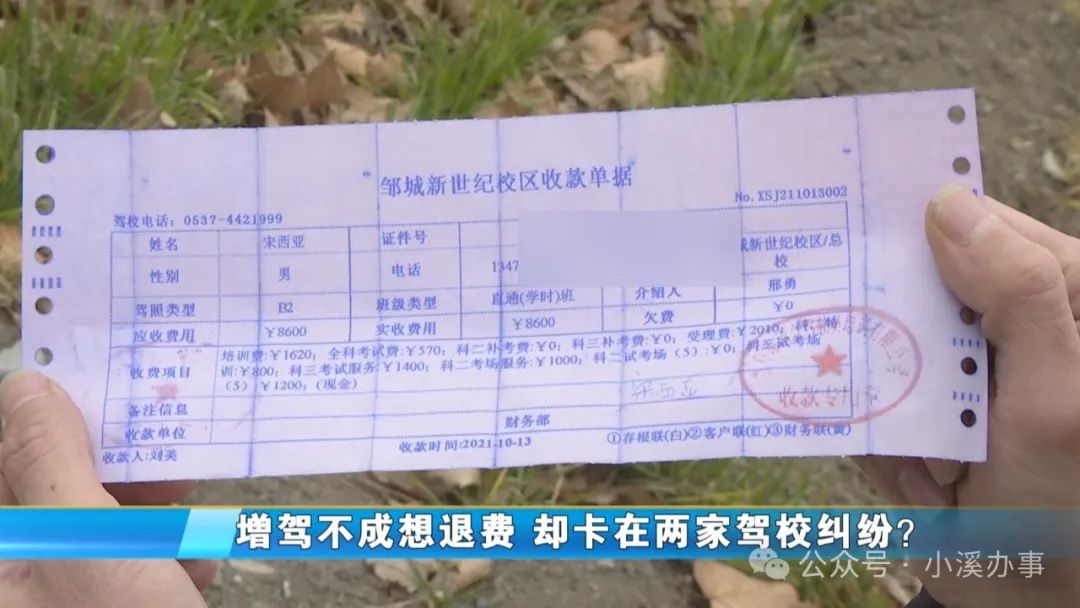 邹城新世纪校区收款单据
No.XSJ211013002
驾校电话：0537-4421999
姓名 宋西亚 证件号 新世纪校区/总校
性别 男 电话 1347
驾照类型 B2 班级类型 直通(学时)班 介绍人 邢勇
应收费用 ¥8600 实收费用 ¥8600 欠费 ¥0
收费项目 培训费:¥1620; 全科考试费:¥570; 科二补考费:¥0; 科三补考费:¥0; 受理费:¥2010; 科 特
训:¥800; 科三考试服务:¥1400; 科二考场服务:¥1000; 科二试考场（5）:¥0; 科三试考场
（5）:¥1200; (现金)
备注信息
宋西亚
收款专用章
收款单位 财务部
收款人:刘美 收款时间:2021-10-13 ①存根联(白)②客户联(红)③财务联(黄)
增驾不成想退费 却卡在两家驾校纠纷?
公众号·小溪办事